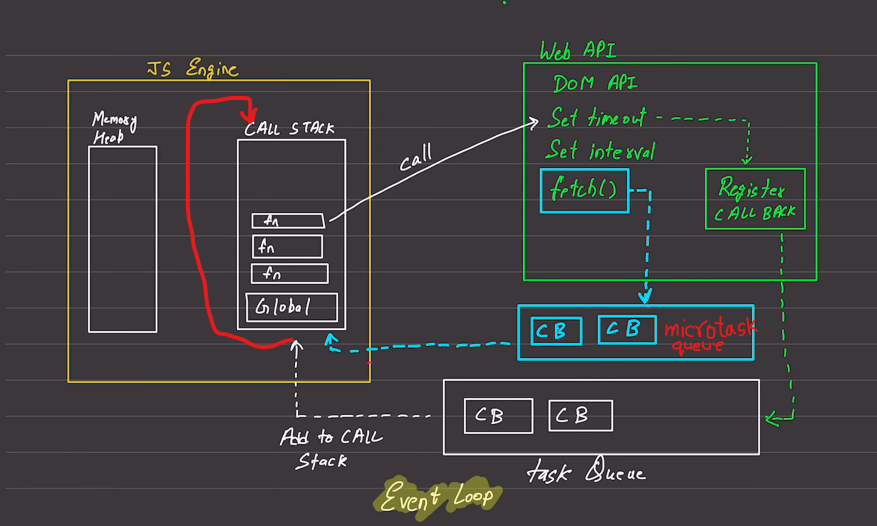 JS Engine
Memory
Heap
CALL STACK
fn
fn
fn
Global
call
Web API
DOM API
Set timeout
Set interval
fetch()
Register
CALL BACK
CB
CB
microtask
queue
CB
CB
task Queue
Add to CALL
Stack
Event Loop